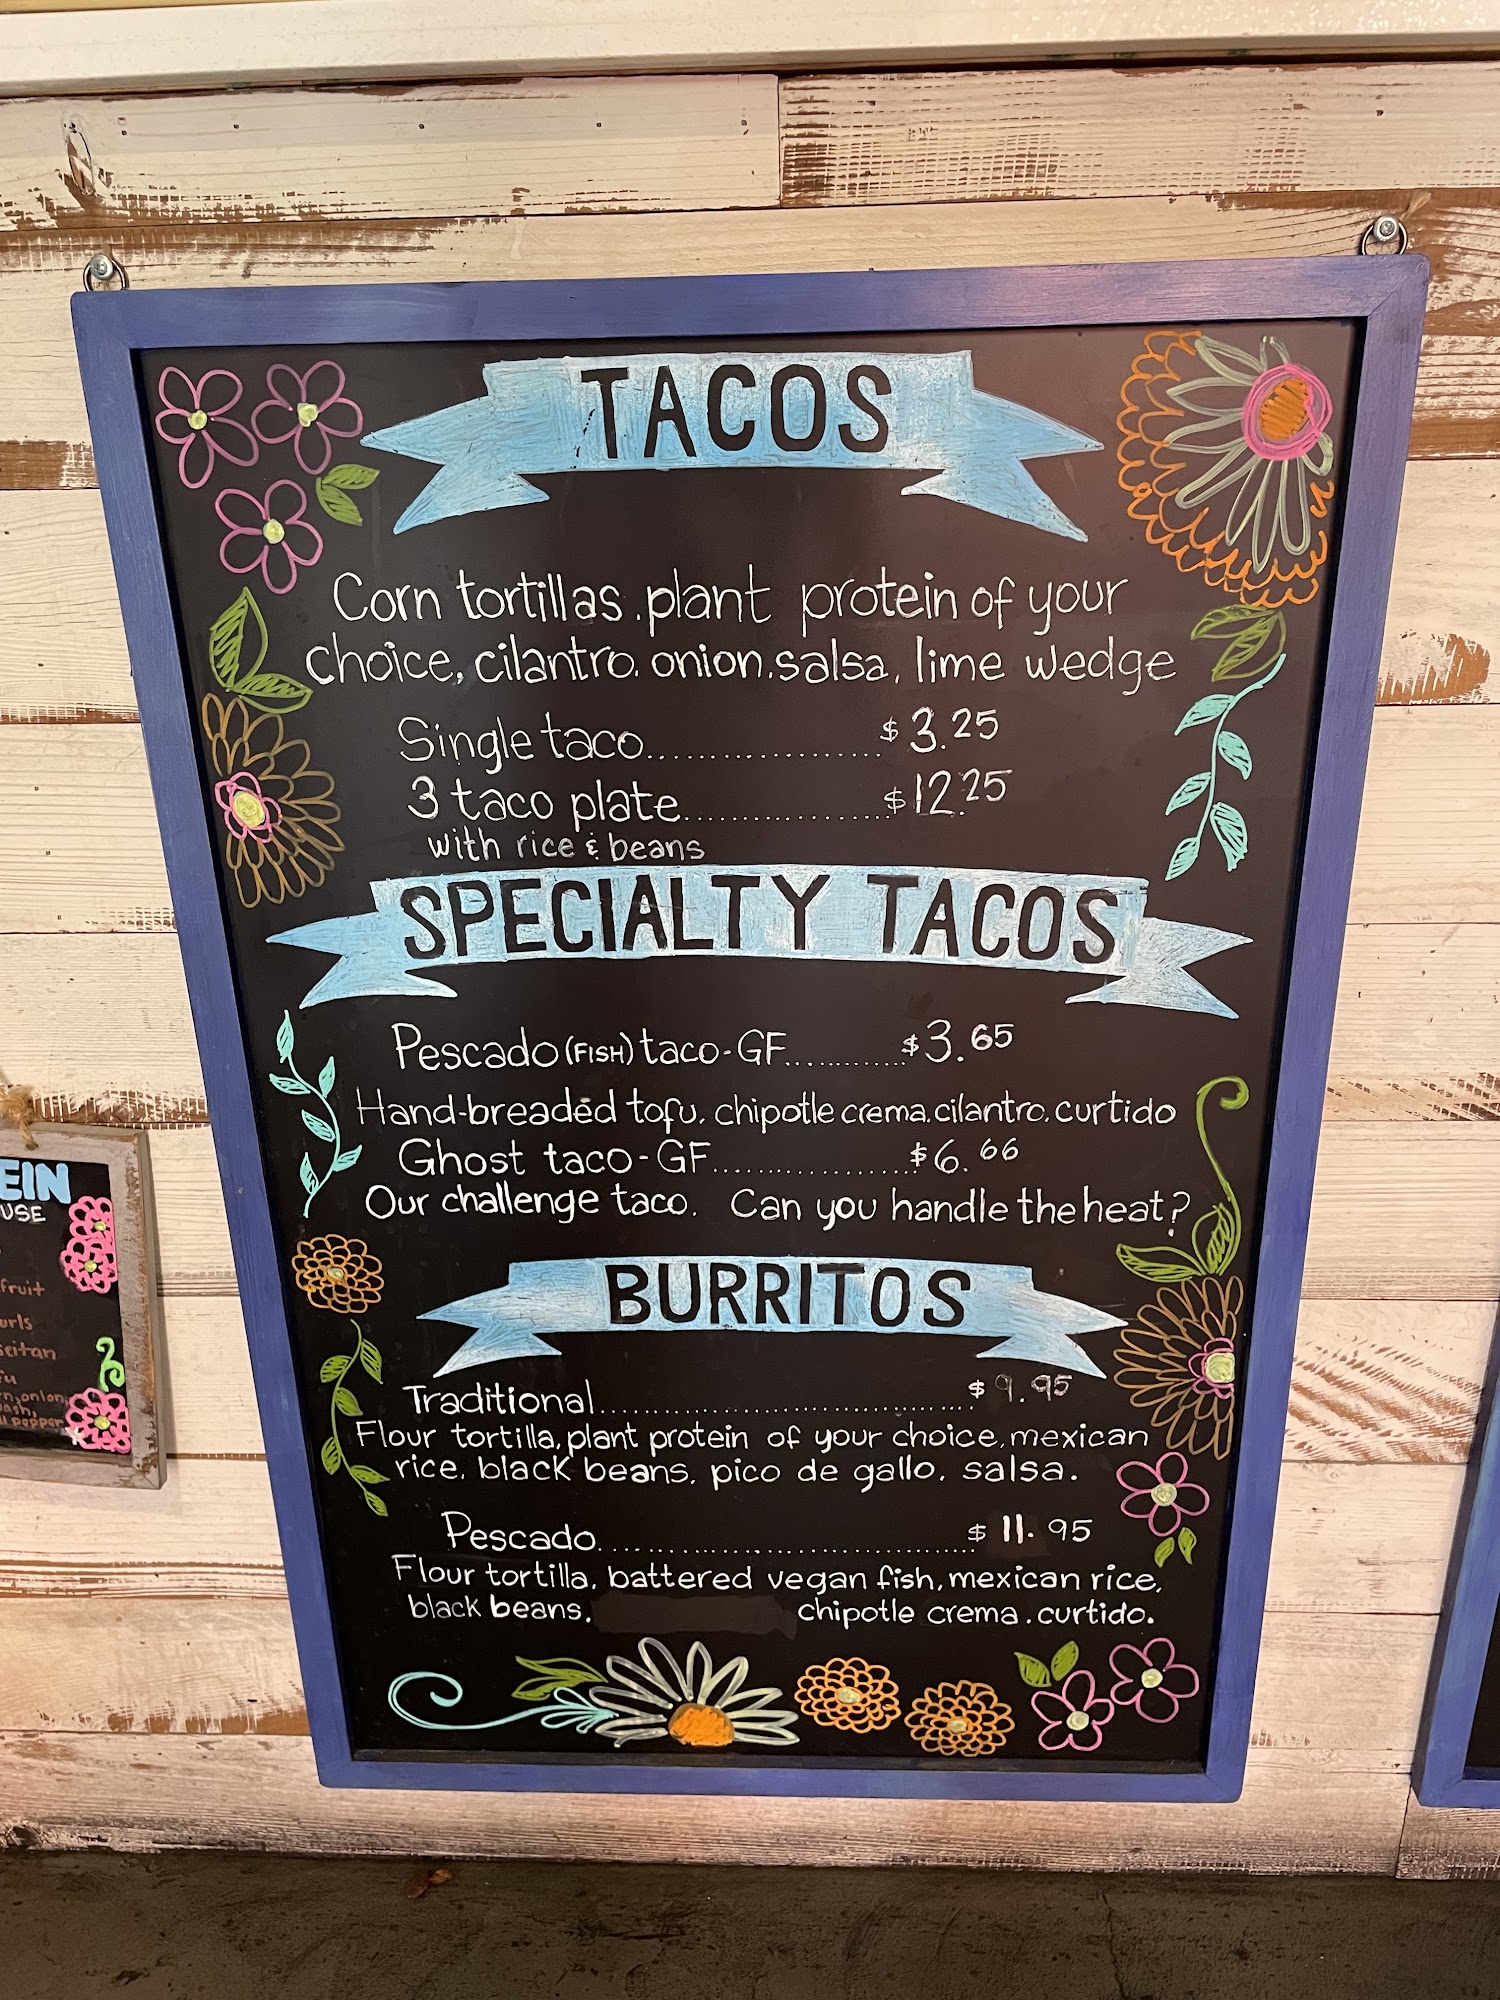 TACOS
Corn tortillas, plant protein of your
choice, cilantro, onion, salsa, lime wedge
Single taco.................... $3.25
3 taco plate.................. $12.25
with rice & beans
SPECIALTY TACOS
Pescado (FISH) taco - GF........... $3.65
Hand-breaded tofu, chipotle crema, cilantro, curtido
Ghost taco - GF.................. $6.66
Our challenge taco. Can you handle the heat?
BURRITOS
Traditional.................................... $9.95
Flour tortilla, plant protein of your choice, mexican
rice, black beans, pico de gallo, salsa.
Pescado.................................... $11.95
Flour tortilla, battered vegan fish, mexican rice,
black beans, chipotle crema, curtido.
EIN
USE
fruit
urls
seitan
fu
rn, onion,
pepper